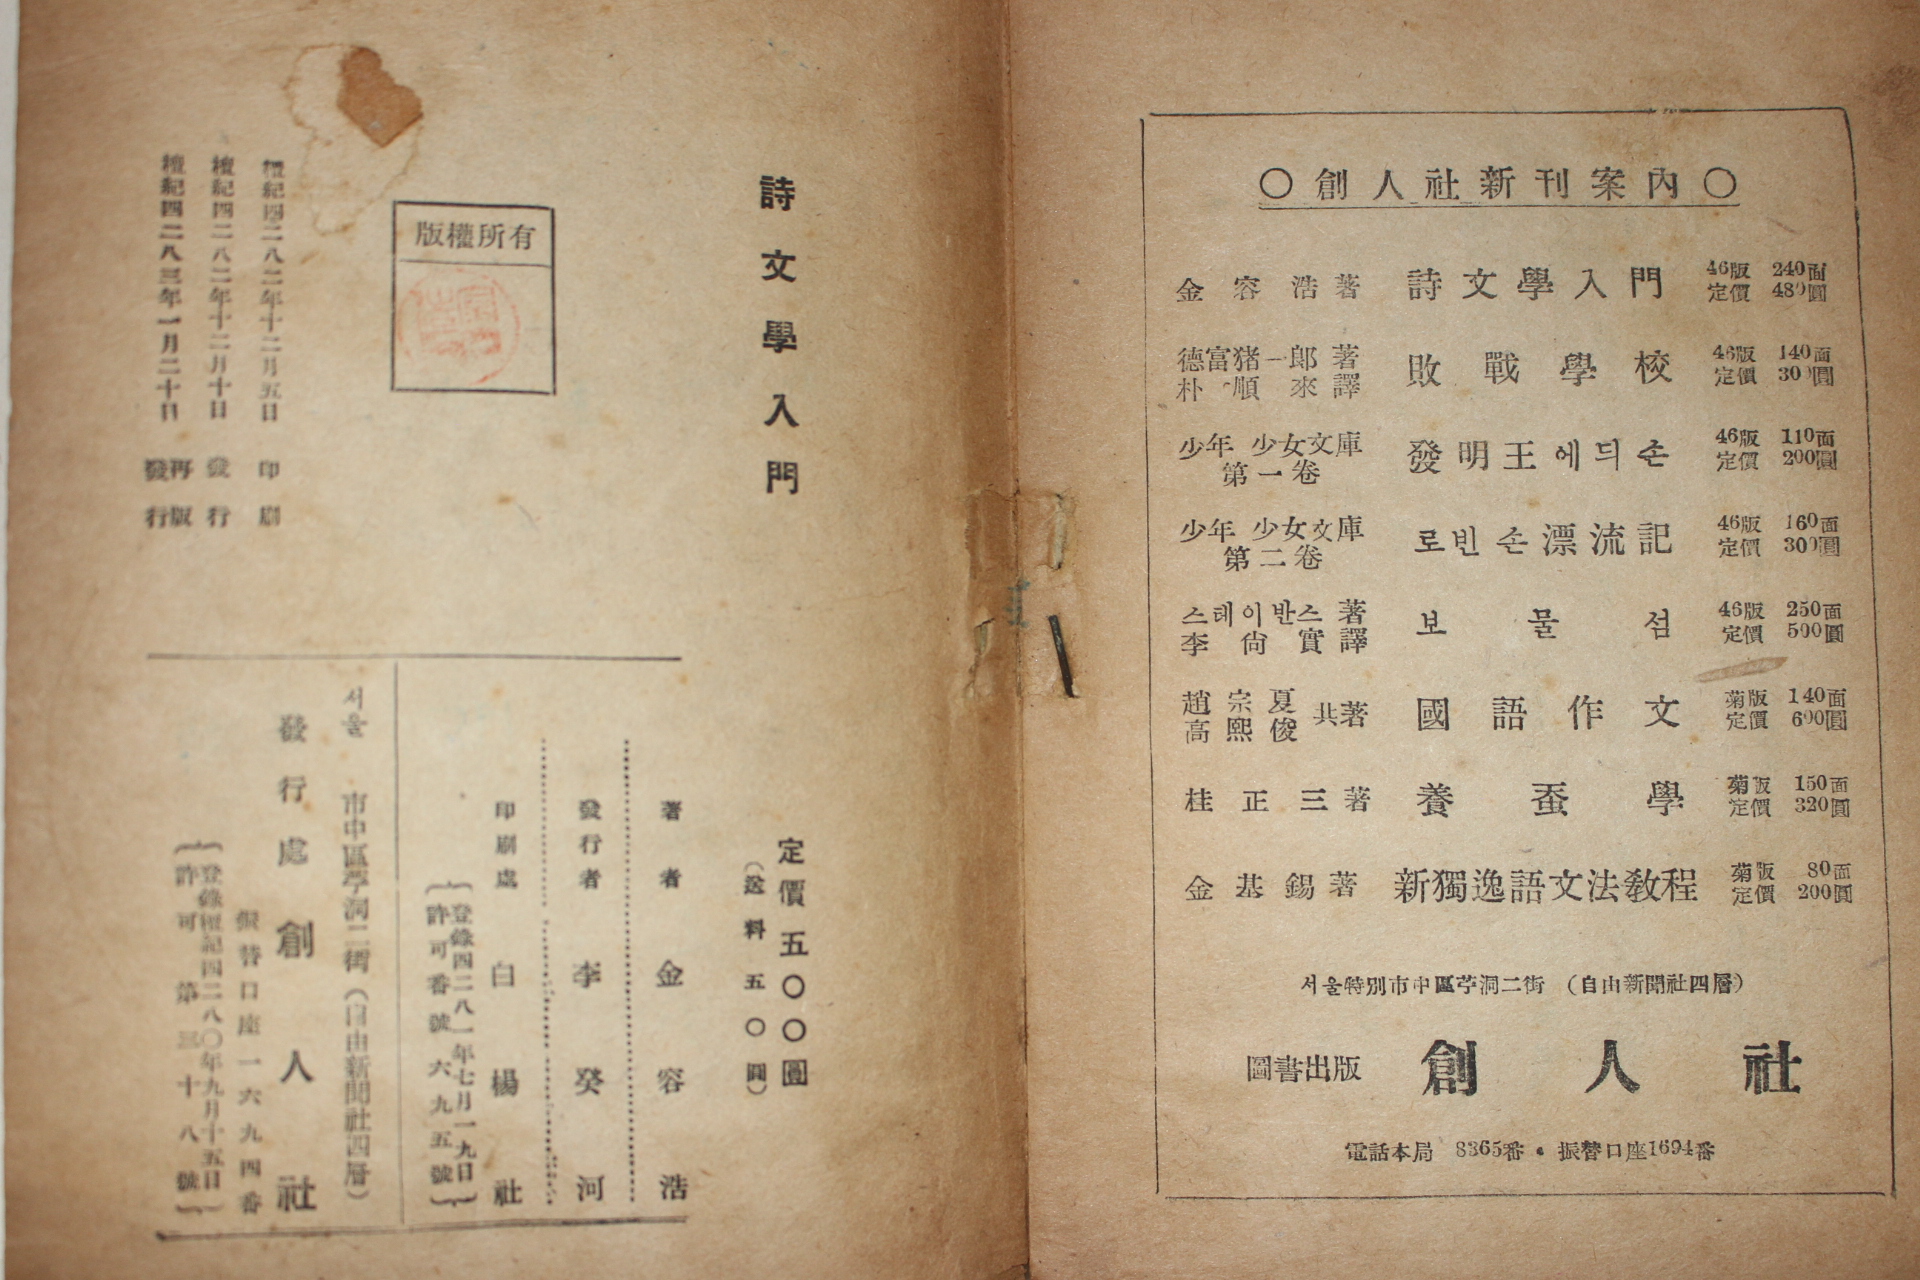 詩文學入門
版權所有
檀紀四二八二年十二月五日 印刷
檀紀四二八二年十二月十日 發行
檀紀四二八三年一月二十日 再版發行
定價五〇〇圓
(送料五〇圓)
著者 金容浩
發行者 李癸河
印刷處 白楊社
(登錄四二八一年七月一九日)
(許可番號六九五號)
서울 市中區苧洞二街(自由新聞社四層)
發行處 創人社
振替口座一六九四番
(登錄檀紀四二八〇年九月十五日)
(許可 第三十八號)
○創人社新刊案內○
金容浩著 詩文學入門 46版 240面
定價 480圓
德富猪一郞著 敗戰學校 46版 140面
朴順來譯 定價 300圓
少年少女文庫 發明王에듸손 46版 110面
第一卷 定價 200圓
少年少女文庫 로빈손漂流記 46版 160面
第二卷 定價 300圓
스테이반스著 보물섬 46版 250面
李尙實譯 定價 500圓
趙宗夏 高熙俊 共著 國語作文 菊版 140面
定價 600圓
桂正三著 養蚕學 菊版 150面
定價 320圓
金基錫著 新獨逸語文法敎程 菊版 80面
定價 200圓
서울特別市中區苧洞二街 (自由新聞社四層)
圖書出版 創人社
電話本局 8365番・振替口座1694番